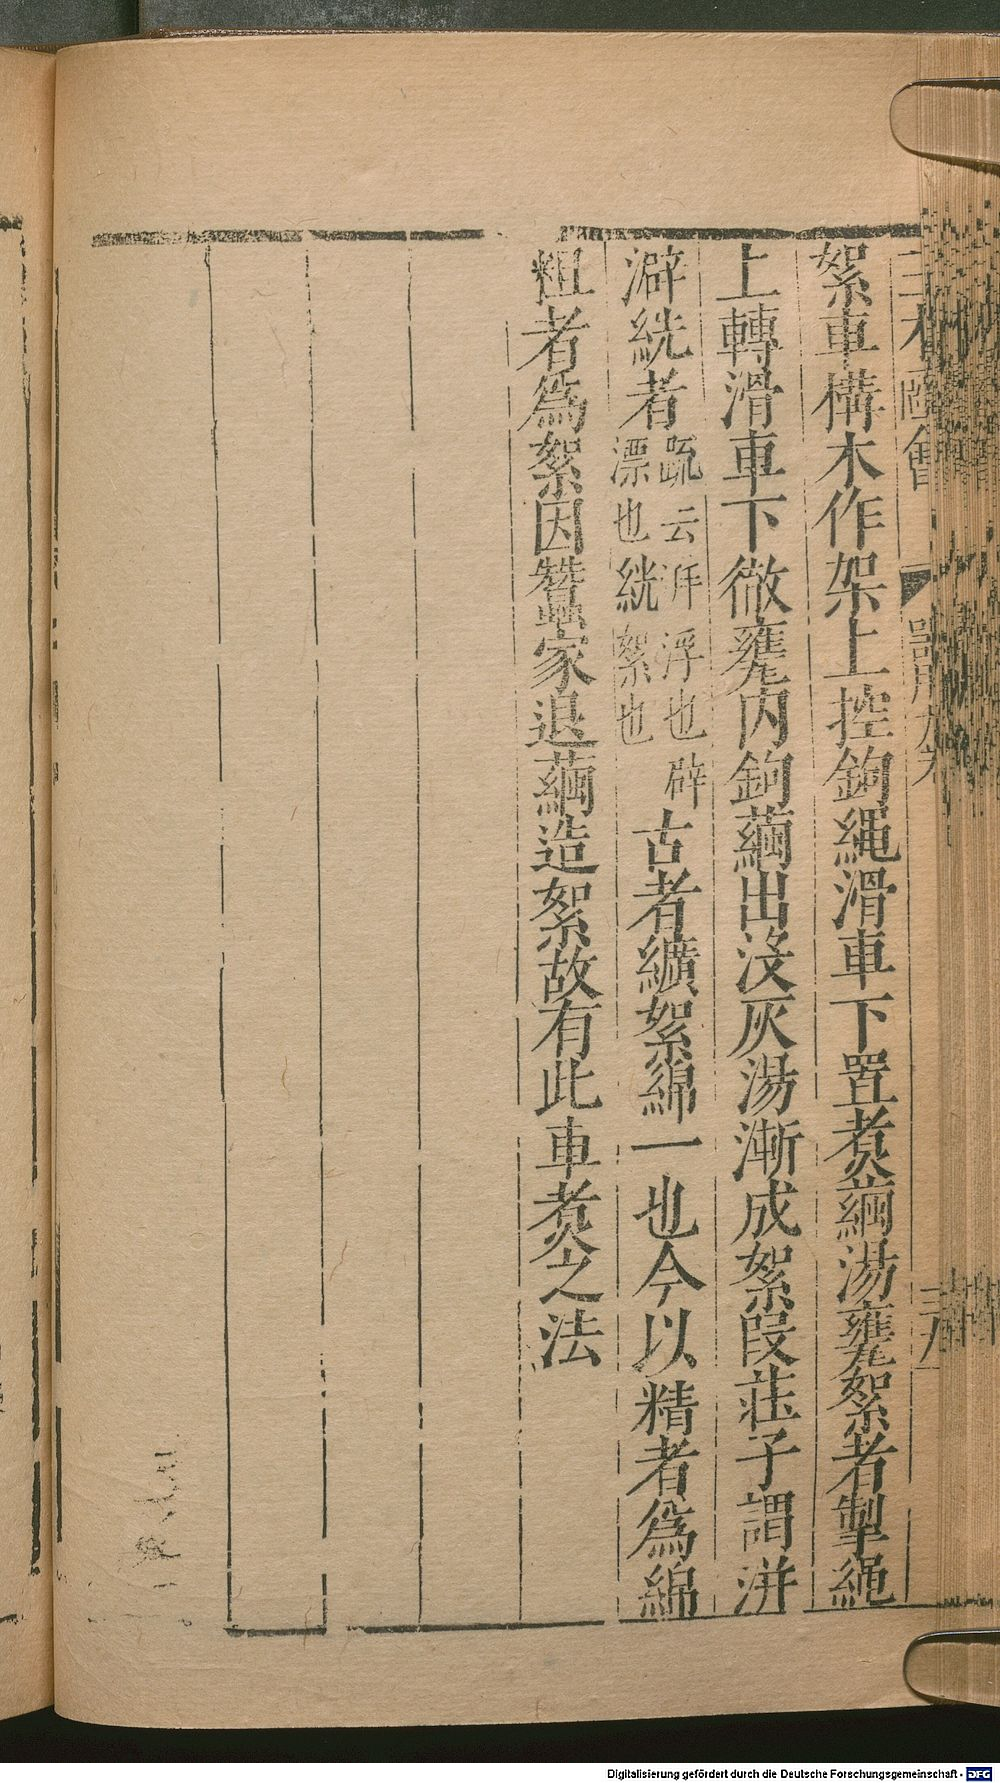 三才圖會 器用九卷 三八
絮車構木作架上控鉤繩滑車下置煑繭湯甕絮者掣繩
上轉滑車下徹甕內鉤繭出沒灰湯漸成絮段莊子謂洴
澼絖者疏云洴浮也辟漂也絖絮也古者纊絮綿一也今以精者爲綿
粗者爲絮因蠶家退繭造絮故有此車煑之法
Digitalisierung gefördert durch die Deutsche Forschungsgemeinschaft - DFG